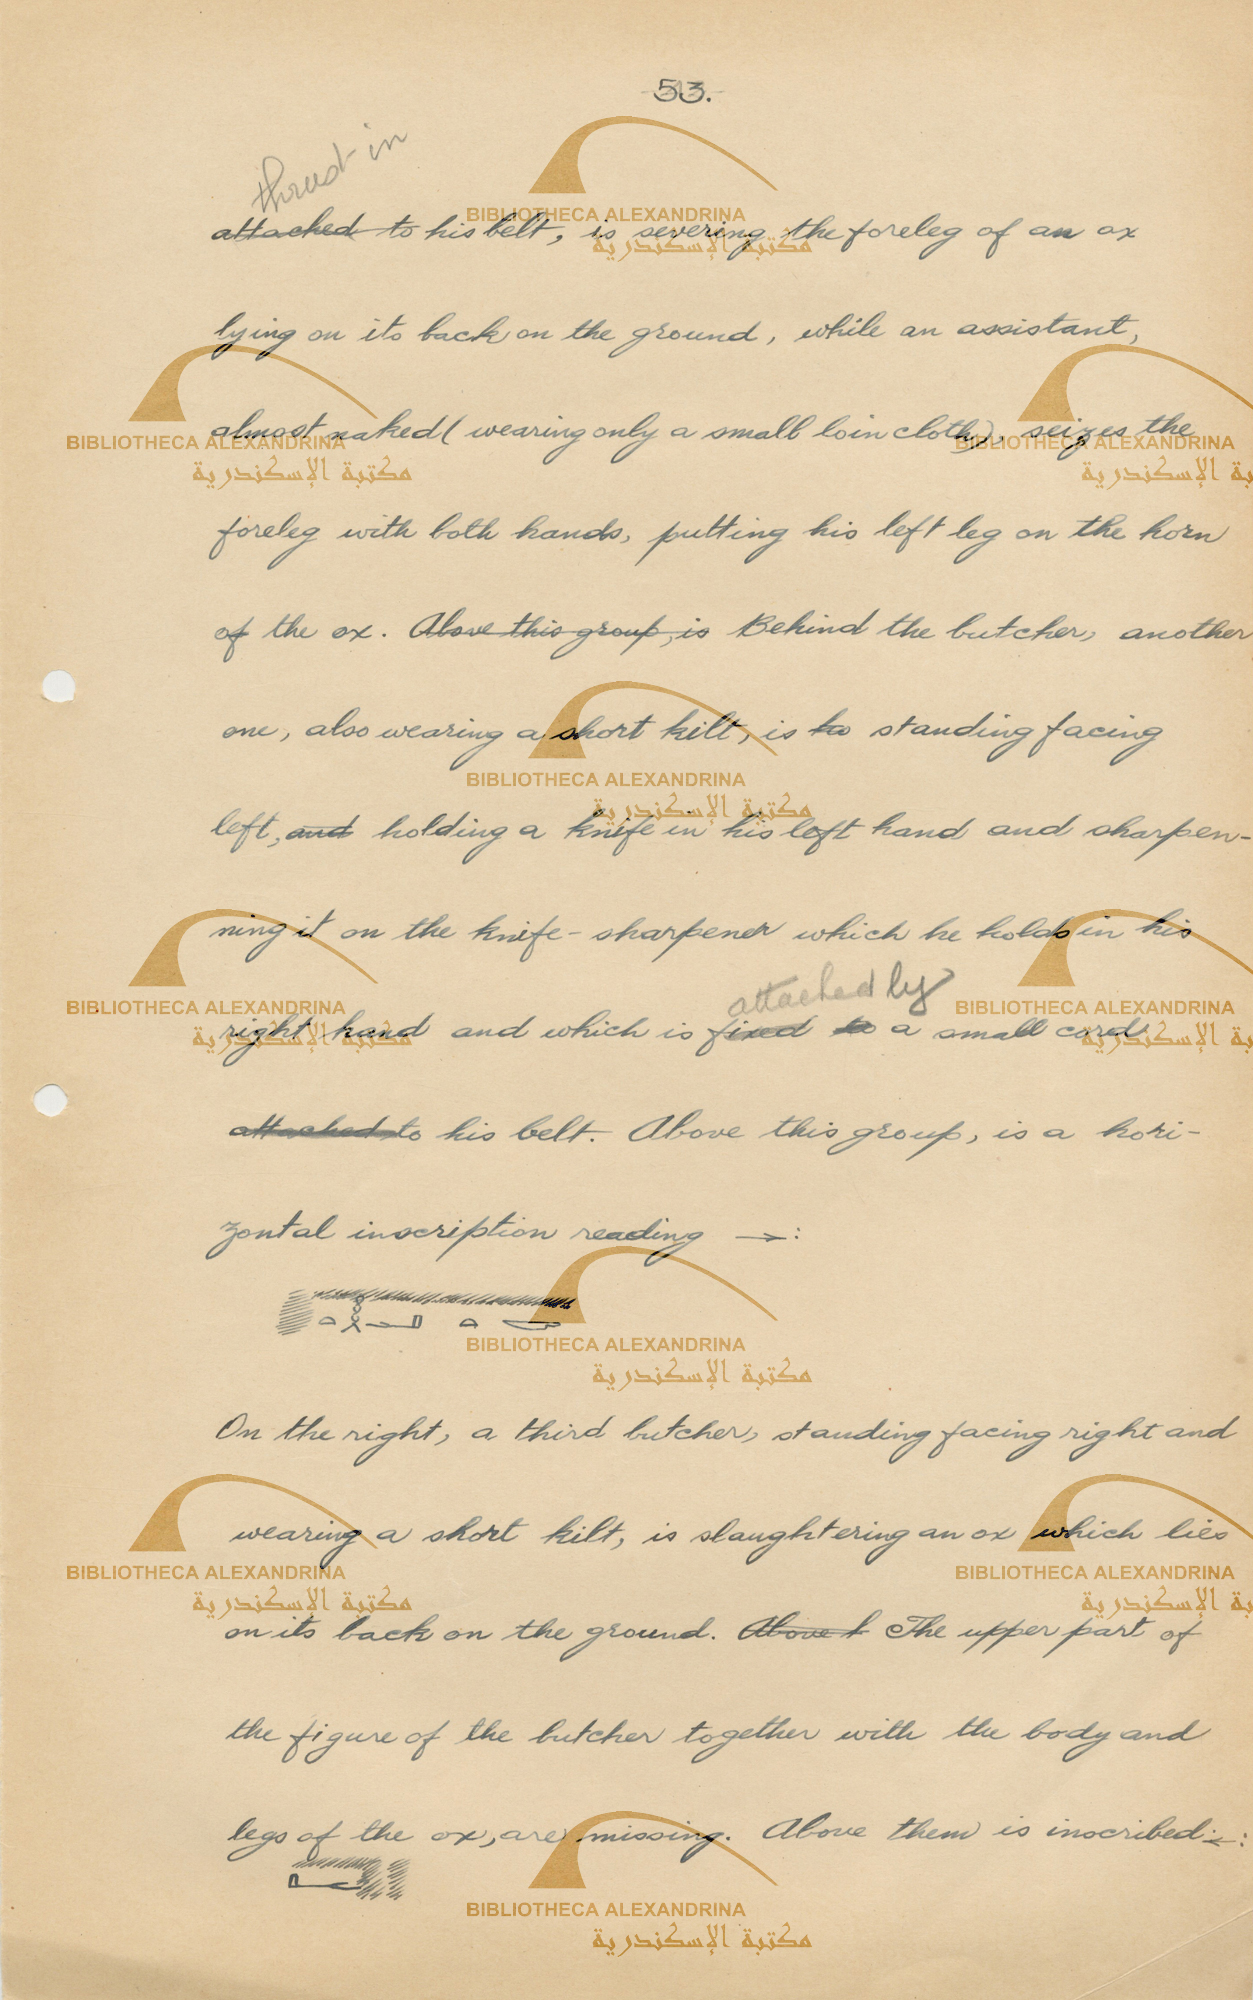 53.
thrust in
attached to his belt, is severing the foreleg of an ox
lying on its back on the ground, while an assistant,
almost naked ( wearing only a small loin cloth), seizes the
foreleg with both hands, putting his left leg on the horn
of the ox. Above this group, is Behind the butcher, another
one, also wearing a short kilt, is to standing facing
left, and holding a knife in his left hand and sharpen-
ning it on the knife-sharpener which he holds in his
attached by
right hand and which is fixed to a small cord
attached to his belt. Above this group, is a hori-
zontal inscription reading →:
On the right, a third butcher, standing facing right and
wearing a short kilt, is slaughtering an ox which lies
on its back on the ground. Above t The upper part of
the figure of the butcher together with the body and
legs of the ox, are missing. Above them is inscribed ←:
BIBLIOTHECA ALEXANDRINA
مكتبة الإسكندرية